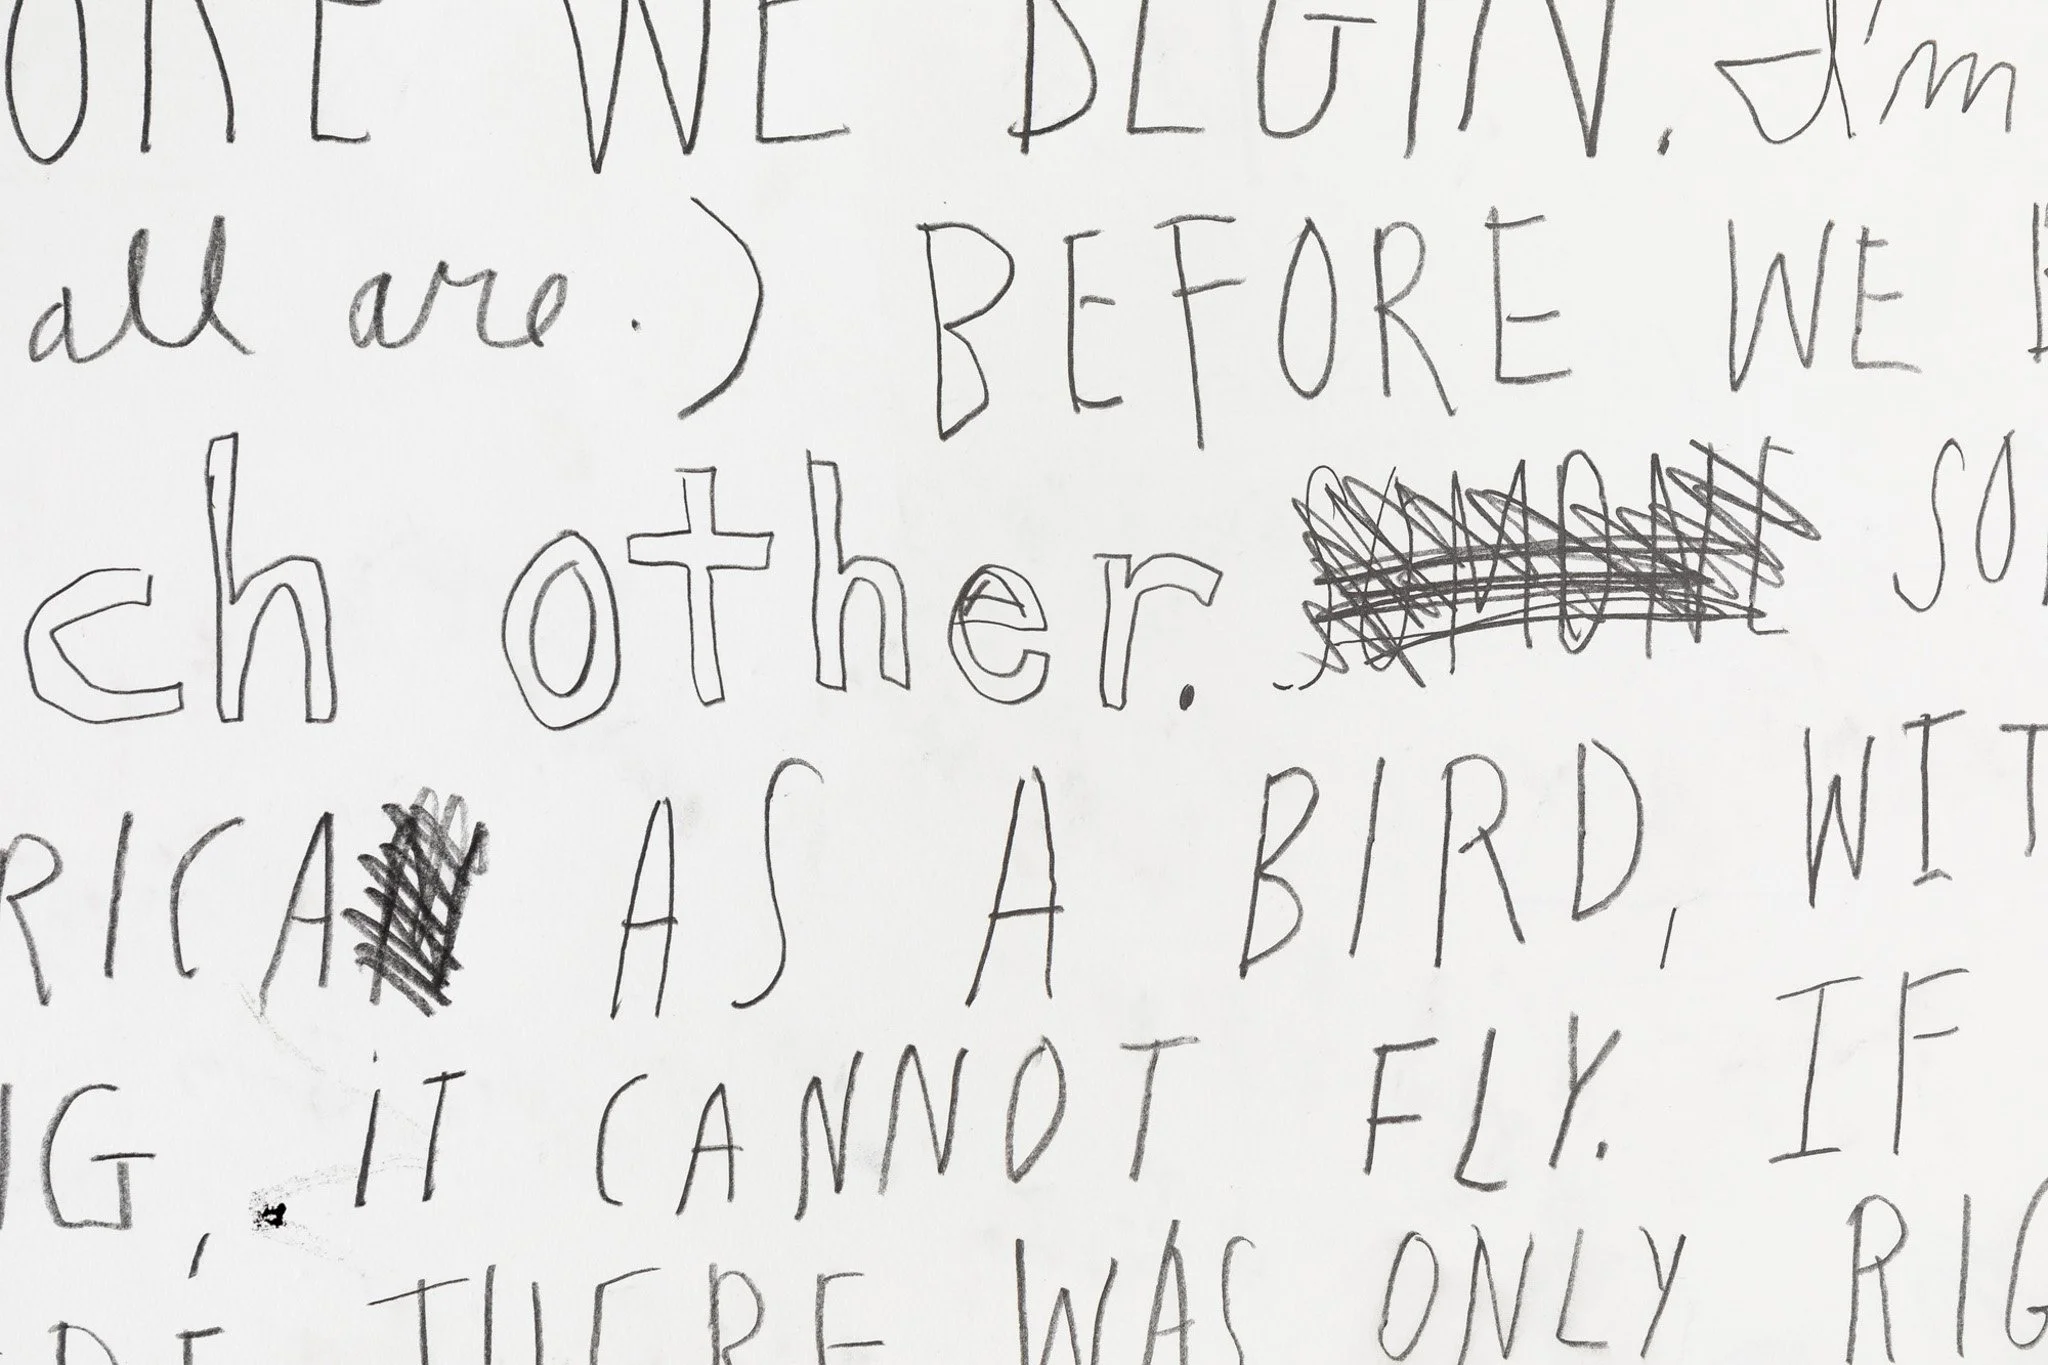 ORE WE BEGIN. I'm
all are.) BEFORE WE B
ch other. SO
RICA AS A BIRD, WIT
IG, iT CANNOT FLY. IF
THERE WAS ONLY RIG